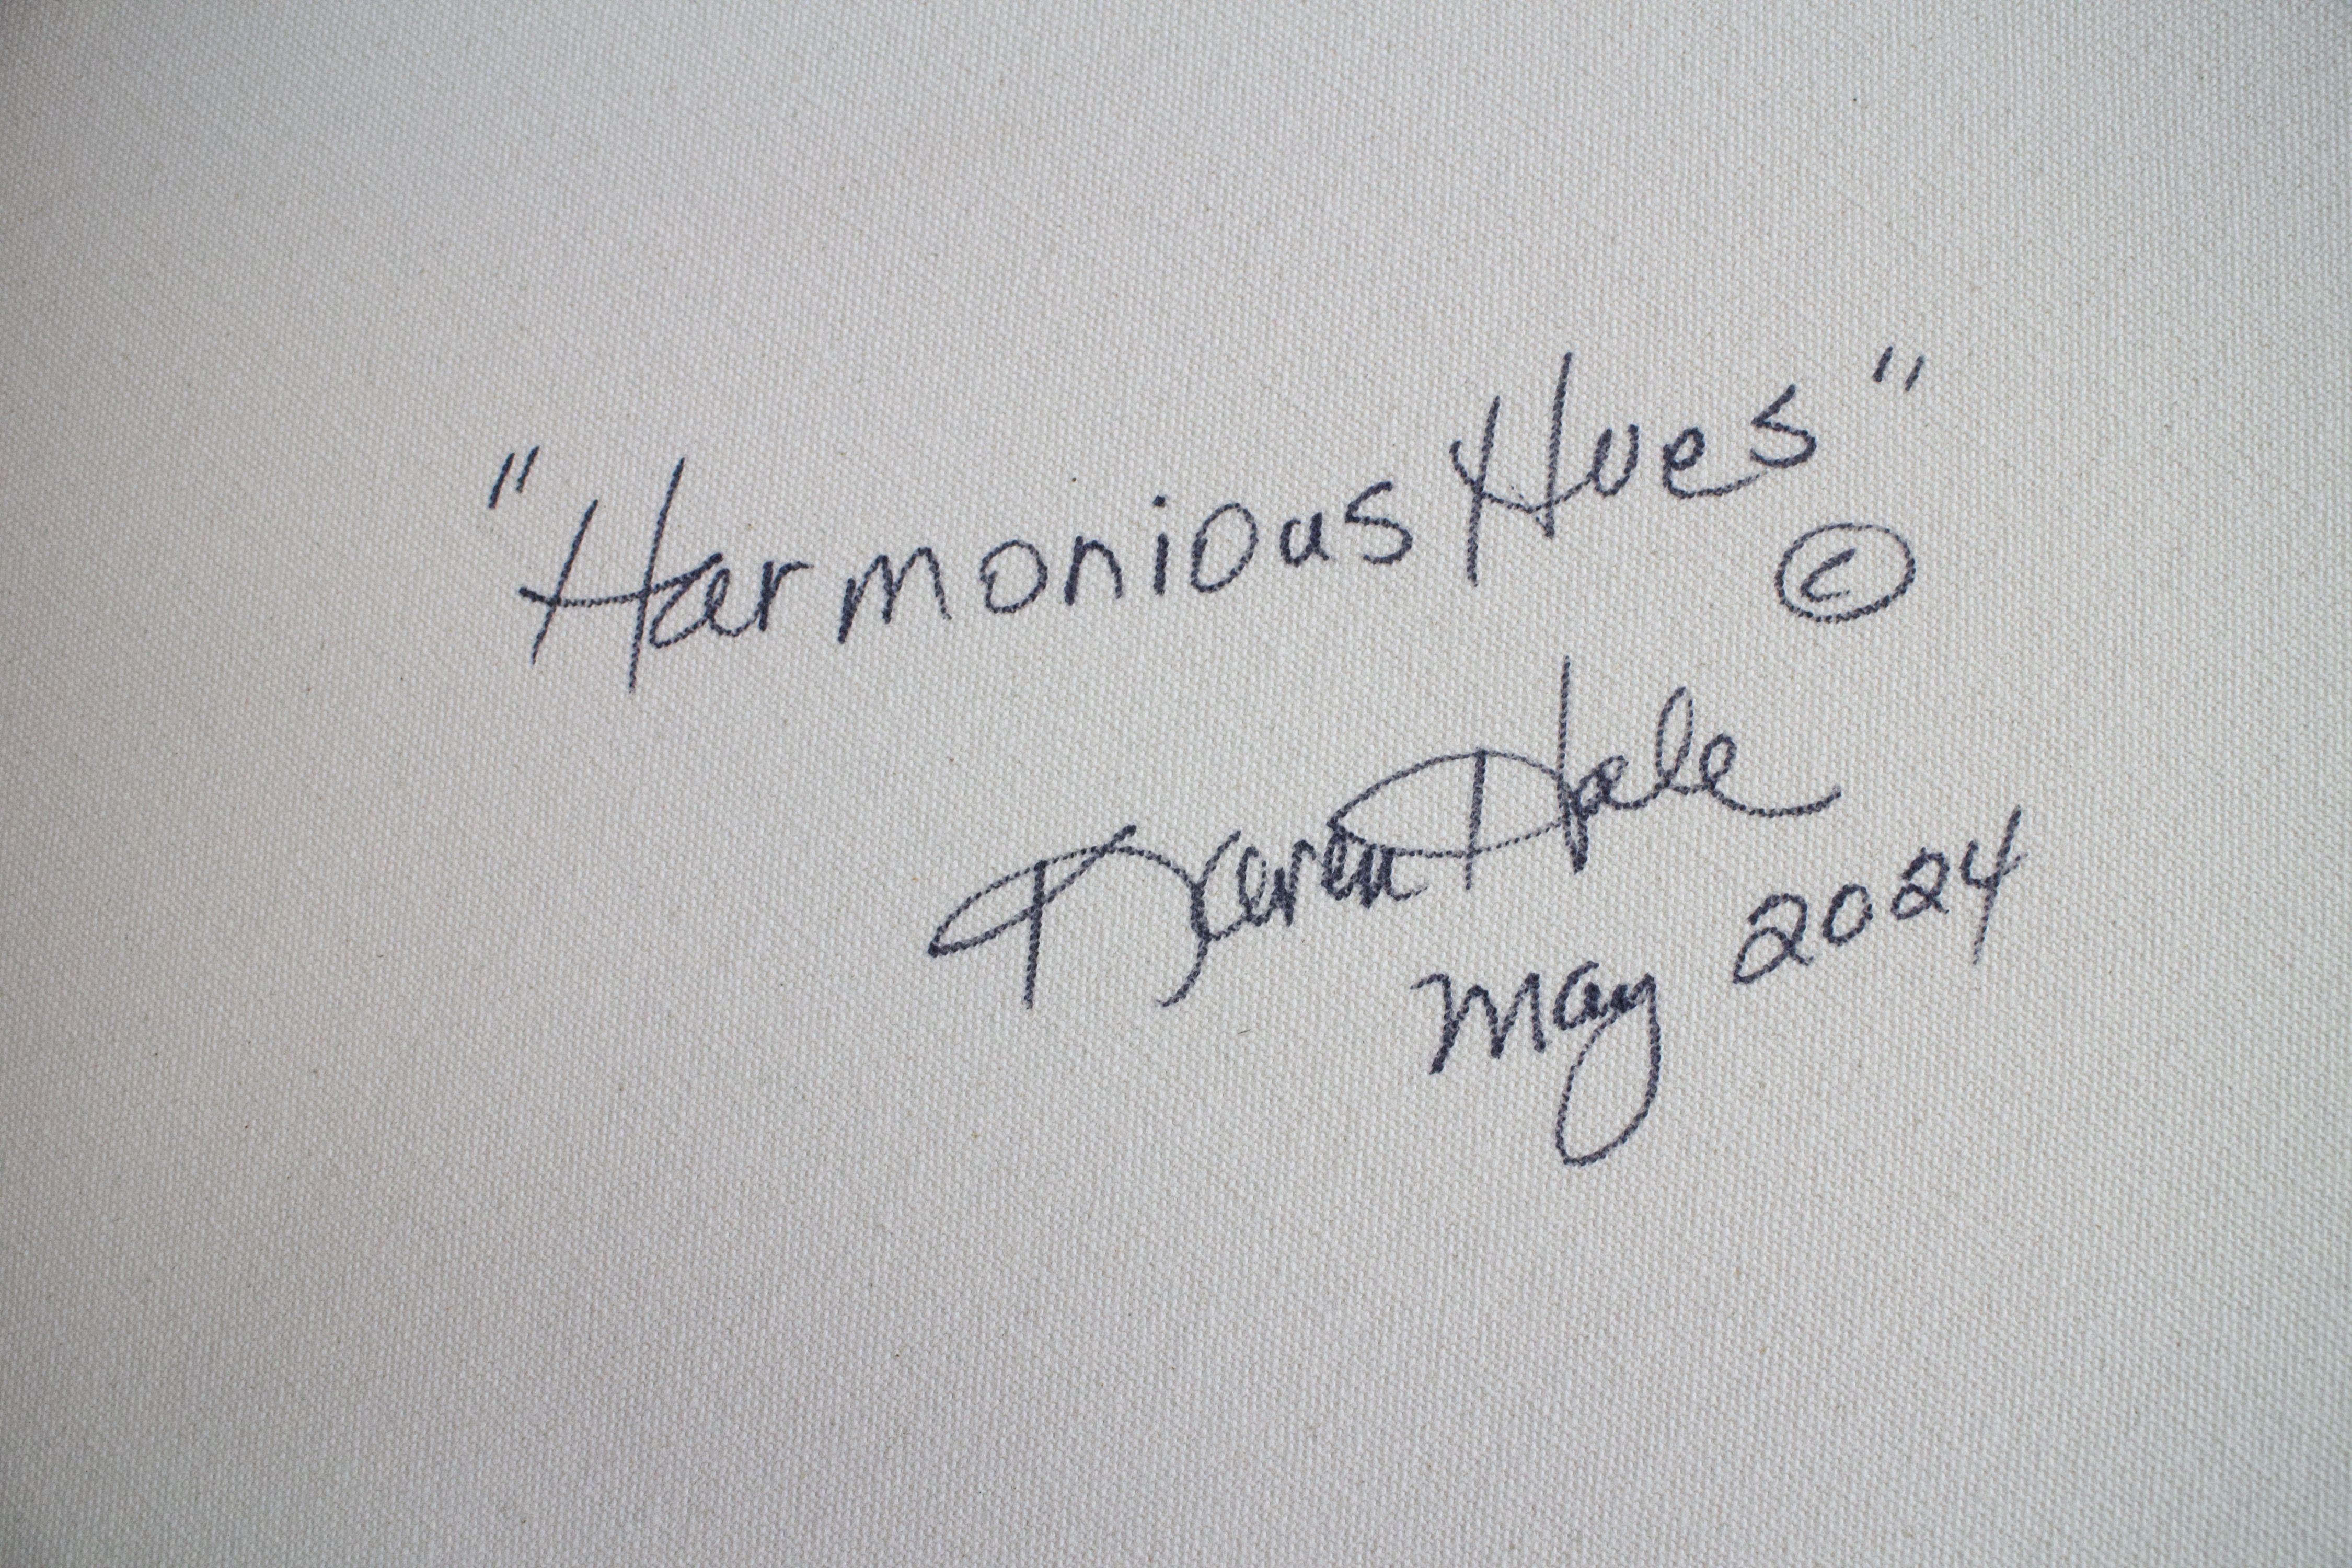 "Harmonious Hues"
©
Karen Hale
May 2024